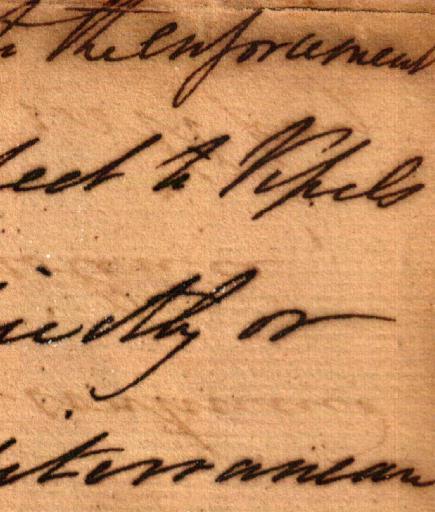 the enforcement
pect to Vessels
directly or
diterranean